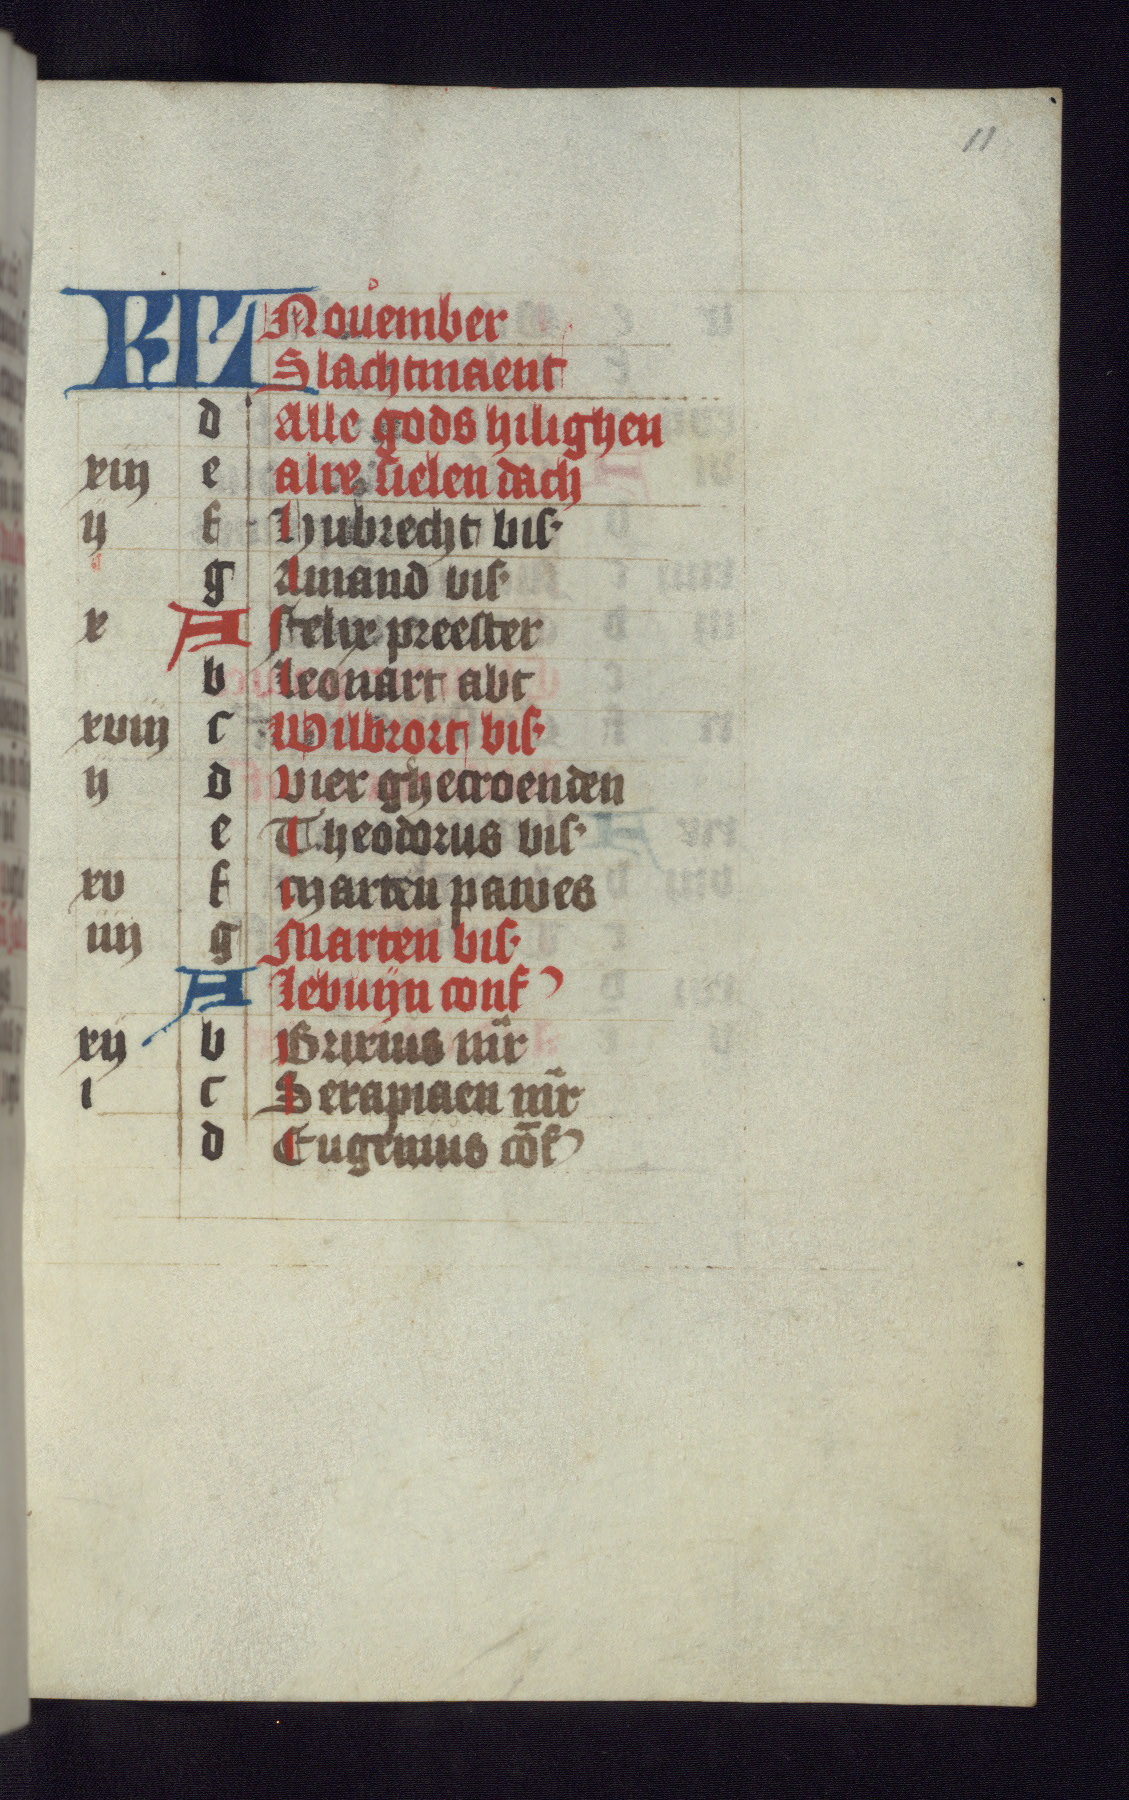 11
KL Nouember
Slachtmaent
d Alle gods hilighen
xiij e alre sielen dach
ij f Hubrecht bis·
g Amand bis·
x A Felix preester
b Leonart abt
xviij c Wilbrort bis·
ij d Vier ghecroenden
e Theodorus bis·
xv f Marten pawes
iiij g Marten bis·
A lebuijn conf
xij b Brixius mr̄
i c Serapiaen mr̄
d Eugenius cōf